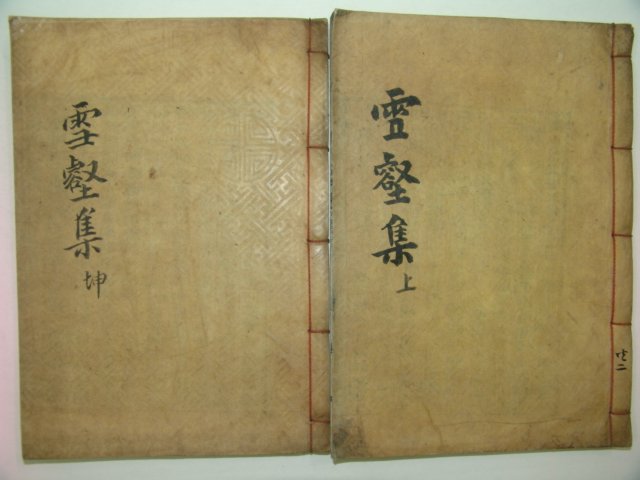 雪壑集
上
共二
雪壑集
坤